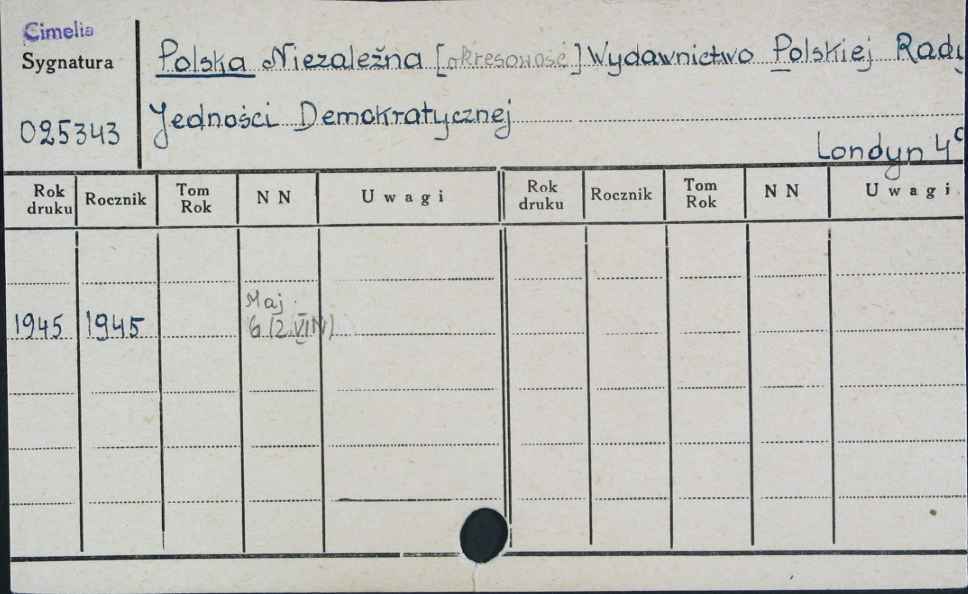 Cimelia
Sygnatura
025343
Polska Niezależna [okresowość] Wydawnictwo Polskiej Rady
Jedności Demokratycznej
Londyn 4°
Rok druku Rocznik Tom Rok N N Uwagi Rok druku Rocznik Tom Rok N N Uwagi
Maj
1945 1945 6 (2.VIII)